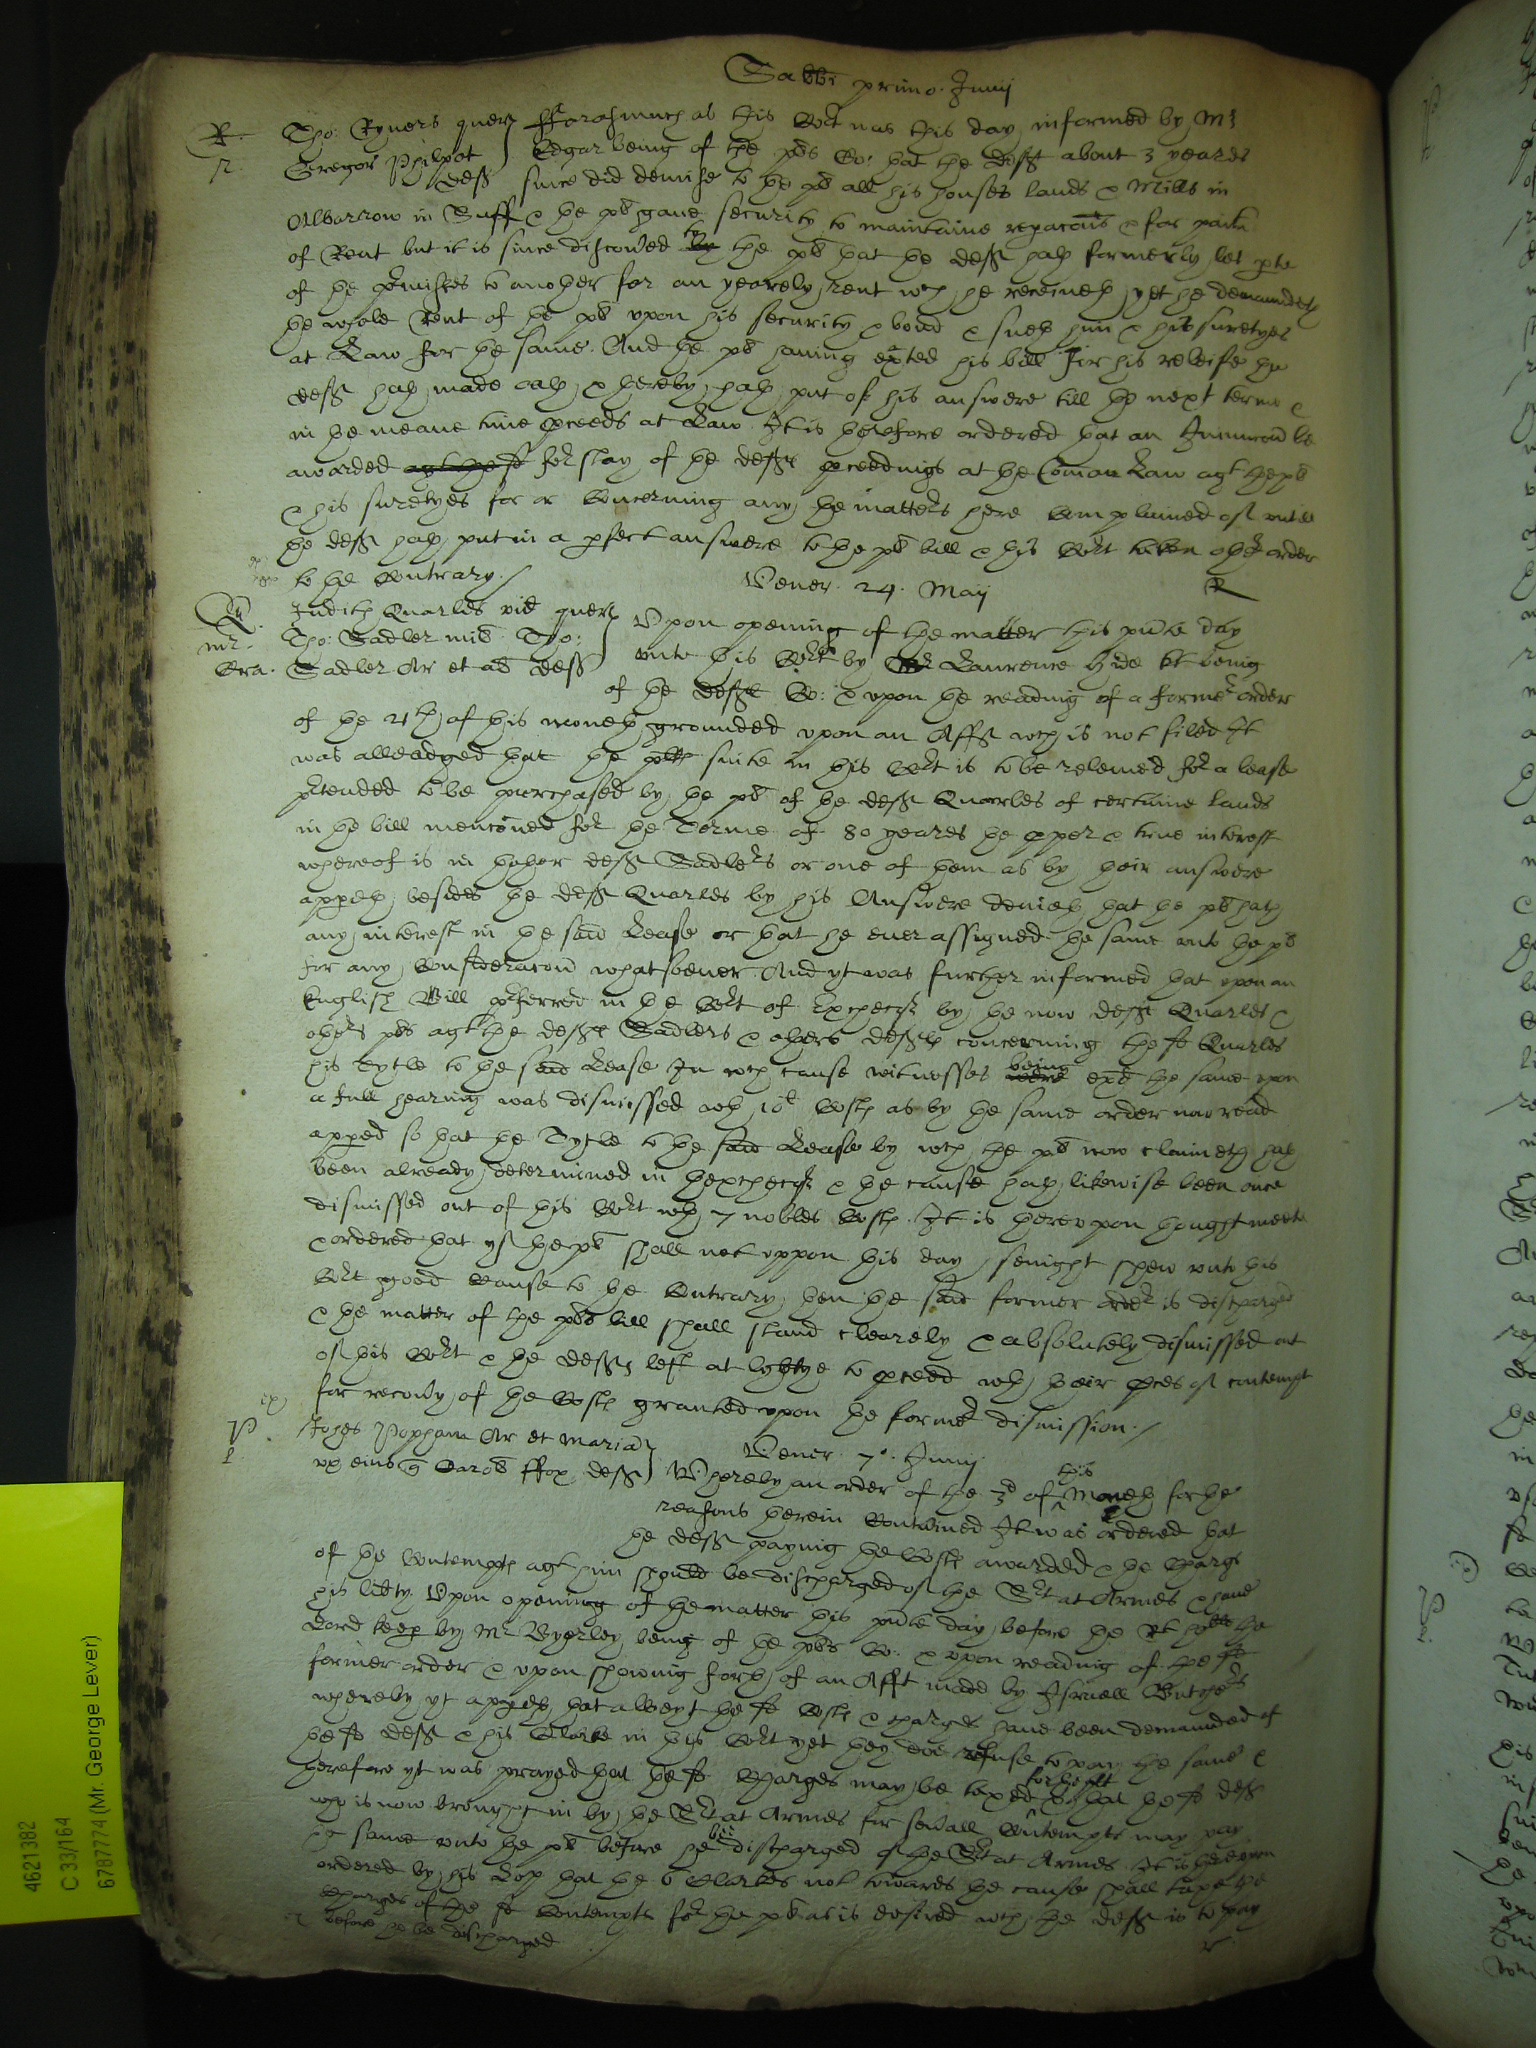 Sabbi primo Junij
R Tho: Ryvers quer Forasmuch as this Cort was this day informed by Mr
Gregory Philpot Edgar being of the pl̃s Co: that the Deft about 3 yeares
Deft since did demise to the pl̃ all his houses lands & Mills in
in Suff & the pl̃ gave security to maintaine repacons & for paimt
of Rent but it is since discou'ed to the pl̃ that the Deft hath formerly let p̱te
of the p̃misses to another for an yearely rent wch he receiueth yet he demaundeth
the whole Rent of the pl̃ vpon his security & bond & sueth him & his suretyes
at Law for the same And the pl̃ having exĩted his bill for his releife the
Deft hath made oath & thereby hath put of his answere till the next terme &
in the meane time p̱ceeds at Law It is therefore ordered that an Iniuncõn be
awarded for stay of the Defts p̱ceedings at the Com̃on Law agt the pl̃
& his suretyes for or Concerning any the matters here Complained of untill
the Deft hath put in a p̱fect answere to the pl̃ bill & this Cort taken other order
to the Contrary
Vener 24 Maij
R
Judith Quarles vid quer Vpon opening of the matter this p̃nte day
Tho: Sadler mil Tho: vnto this Cort by Mr Laurence Hide being
Sadler Ar et al Deft
of the Defts Co: & vpon the reading of a former order
of the 21th of this moneth grounded vpon an Afft wch is not filed It
was alleadged that the pl̃ts suite in this Cort is to be releived for a lease
p̃tended to be purchased by the pl̃ of the Deft Quarles of certaine lands
in the bill menc̃oned for the Terme of 80 yeares the p̱per & true interest
whereof is in thother Deft Sadlers or one of them as by their answere
app̱eth besides the Deft Quarles by his Answere denieth that the pl̃ hath
any interest in the said Lease or that he ever assigned the same vnto the pl̃
for any Considerac̃on whatsoever And yt was further informed that vpon an
English Bill p̃ferred in the Cort of Exchecqr by the now Deft Quarles &
others pl̃s agt the Defts Sadlers & others Defts concerning the sd Quarles
his Tytle to the said Lease In wch cause witnesses being exed the same vpon
a full hearing was dismissed wth 10l Costs as by the same order now read
app̱ed so that the Tytle to the said Lease by wch the pl̃ now claimeth hath
been already determined in thexchecqr & the cause hath likewise been once
dismissed out of this Cort wth 7 nobles Costs It is herevpon thought meete
& ordered that yf the pl̃ shall not vppon this day senight shew vnto this
Cort good Cause to the Contrary then the said former order is discharged
& the matter of the pl̃s bill shall stand clearely & absolutely dismissed out
of this Cort & the Defts left at lybtye to p̱ceed wth their p̱ces of contempt
for recou'y of the Costs granted vpon the former dismission
P Popham Ar et Maria Vener 7o Junij
vx eius q Carol̃ Fox Deft Whereby an order of the 3d of this Moneth for the
reasons therein Contained It was ordered that
the Deft paying the Costs awarded & the Charge
of the Contempts agt him should be discharged of the Srt at Armes & have
his libty Vpon opening of the matter this p̃nte day before the Rt hoble the
Lord keep̱ by Mr Byerley being of the pl̃s Co: & vpon reading of the sd
former order & vpon showing forth of an Afft made by Israell
whereby yt app̱eth that albeyt the sd Costs & charges have been demaunded of
the sd Deft & his Clarke in this Cort yet they doe refuse to pay the same &
therefore yt was prayed that the sd Charges may be taxed & that the sd Deft
who is now brought in by the Srt at Armes for seu'all Contempts may pay
the same vnto the pl̃ before he bee discharged of the Srt at Armes It is herevpon
ordered by his Lop that the 6 Clarkes not towards the cause shall taxe the
charges of the sd Contempts for the pl̃ as is desired wch the Deft is to pay
before he be discharged
4621382
C 33/164
6787774 (Mr. George Lever)